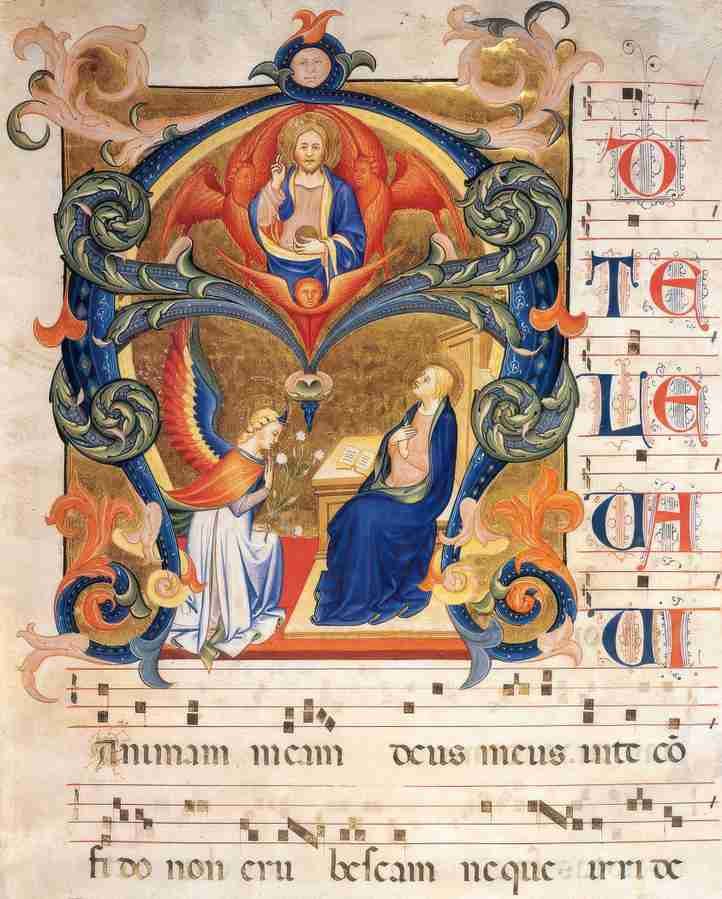 AD
TE
LE
UA
UI
Animam meam deus meus inte cō
fido non eru beſcam neque irri de